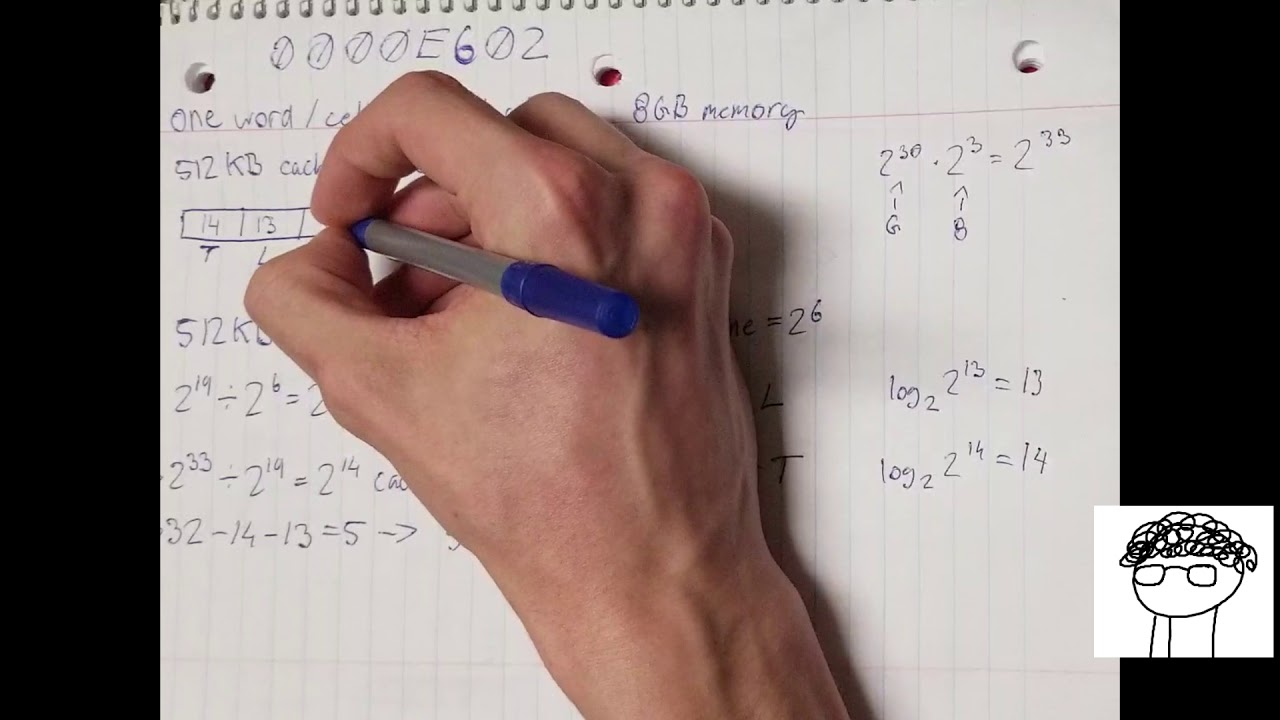 0000E602
One word/ 8GB memory
512KB
2³⁰ · 2³ = 2³³
G 8
14 | 13
T L
512KB = 2⁶
2¹⁹ ÷ 2⁶ = L
log₂ 2¹³ = 13
2³³ ÷ 2¹⁹ = 2¹⁴ T
log₂ 2¹⁴ = 14
32 - 14 - 13 = 5 →